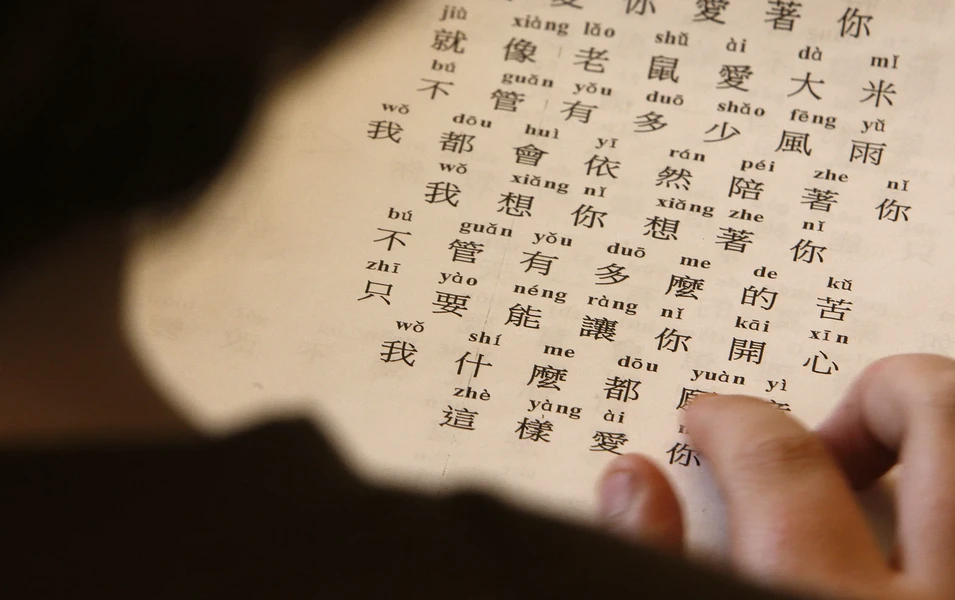 你 愛 著 你
jiù xiàng lǎo shǔ ài dà mǐ
就 像 老 鼠 愛 大 米
bú guǎn yǒu duō shǎo fēng yǔ
不 管 有 多 少 風 雨
wǒ dōu huì yī rán péi zhe nǐ
我 都 會 依 然 陪 著 你
wǒ xiǎng nǐ xiǎng zhe nǐ
我 想 你 想 著 你
bú guǎn yǒu duō me de kǔ
不 管 有 多 麼 的 苦
zhī yào néng ràng nǐ kāi xīn
只 要 能 讓 你 開 心
wǒ shí me dōu yuàn yì
我 什 麼 都
zhè yàng ài
這 樣 愛 你